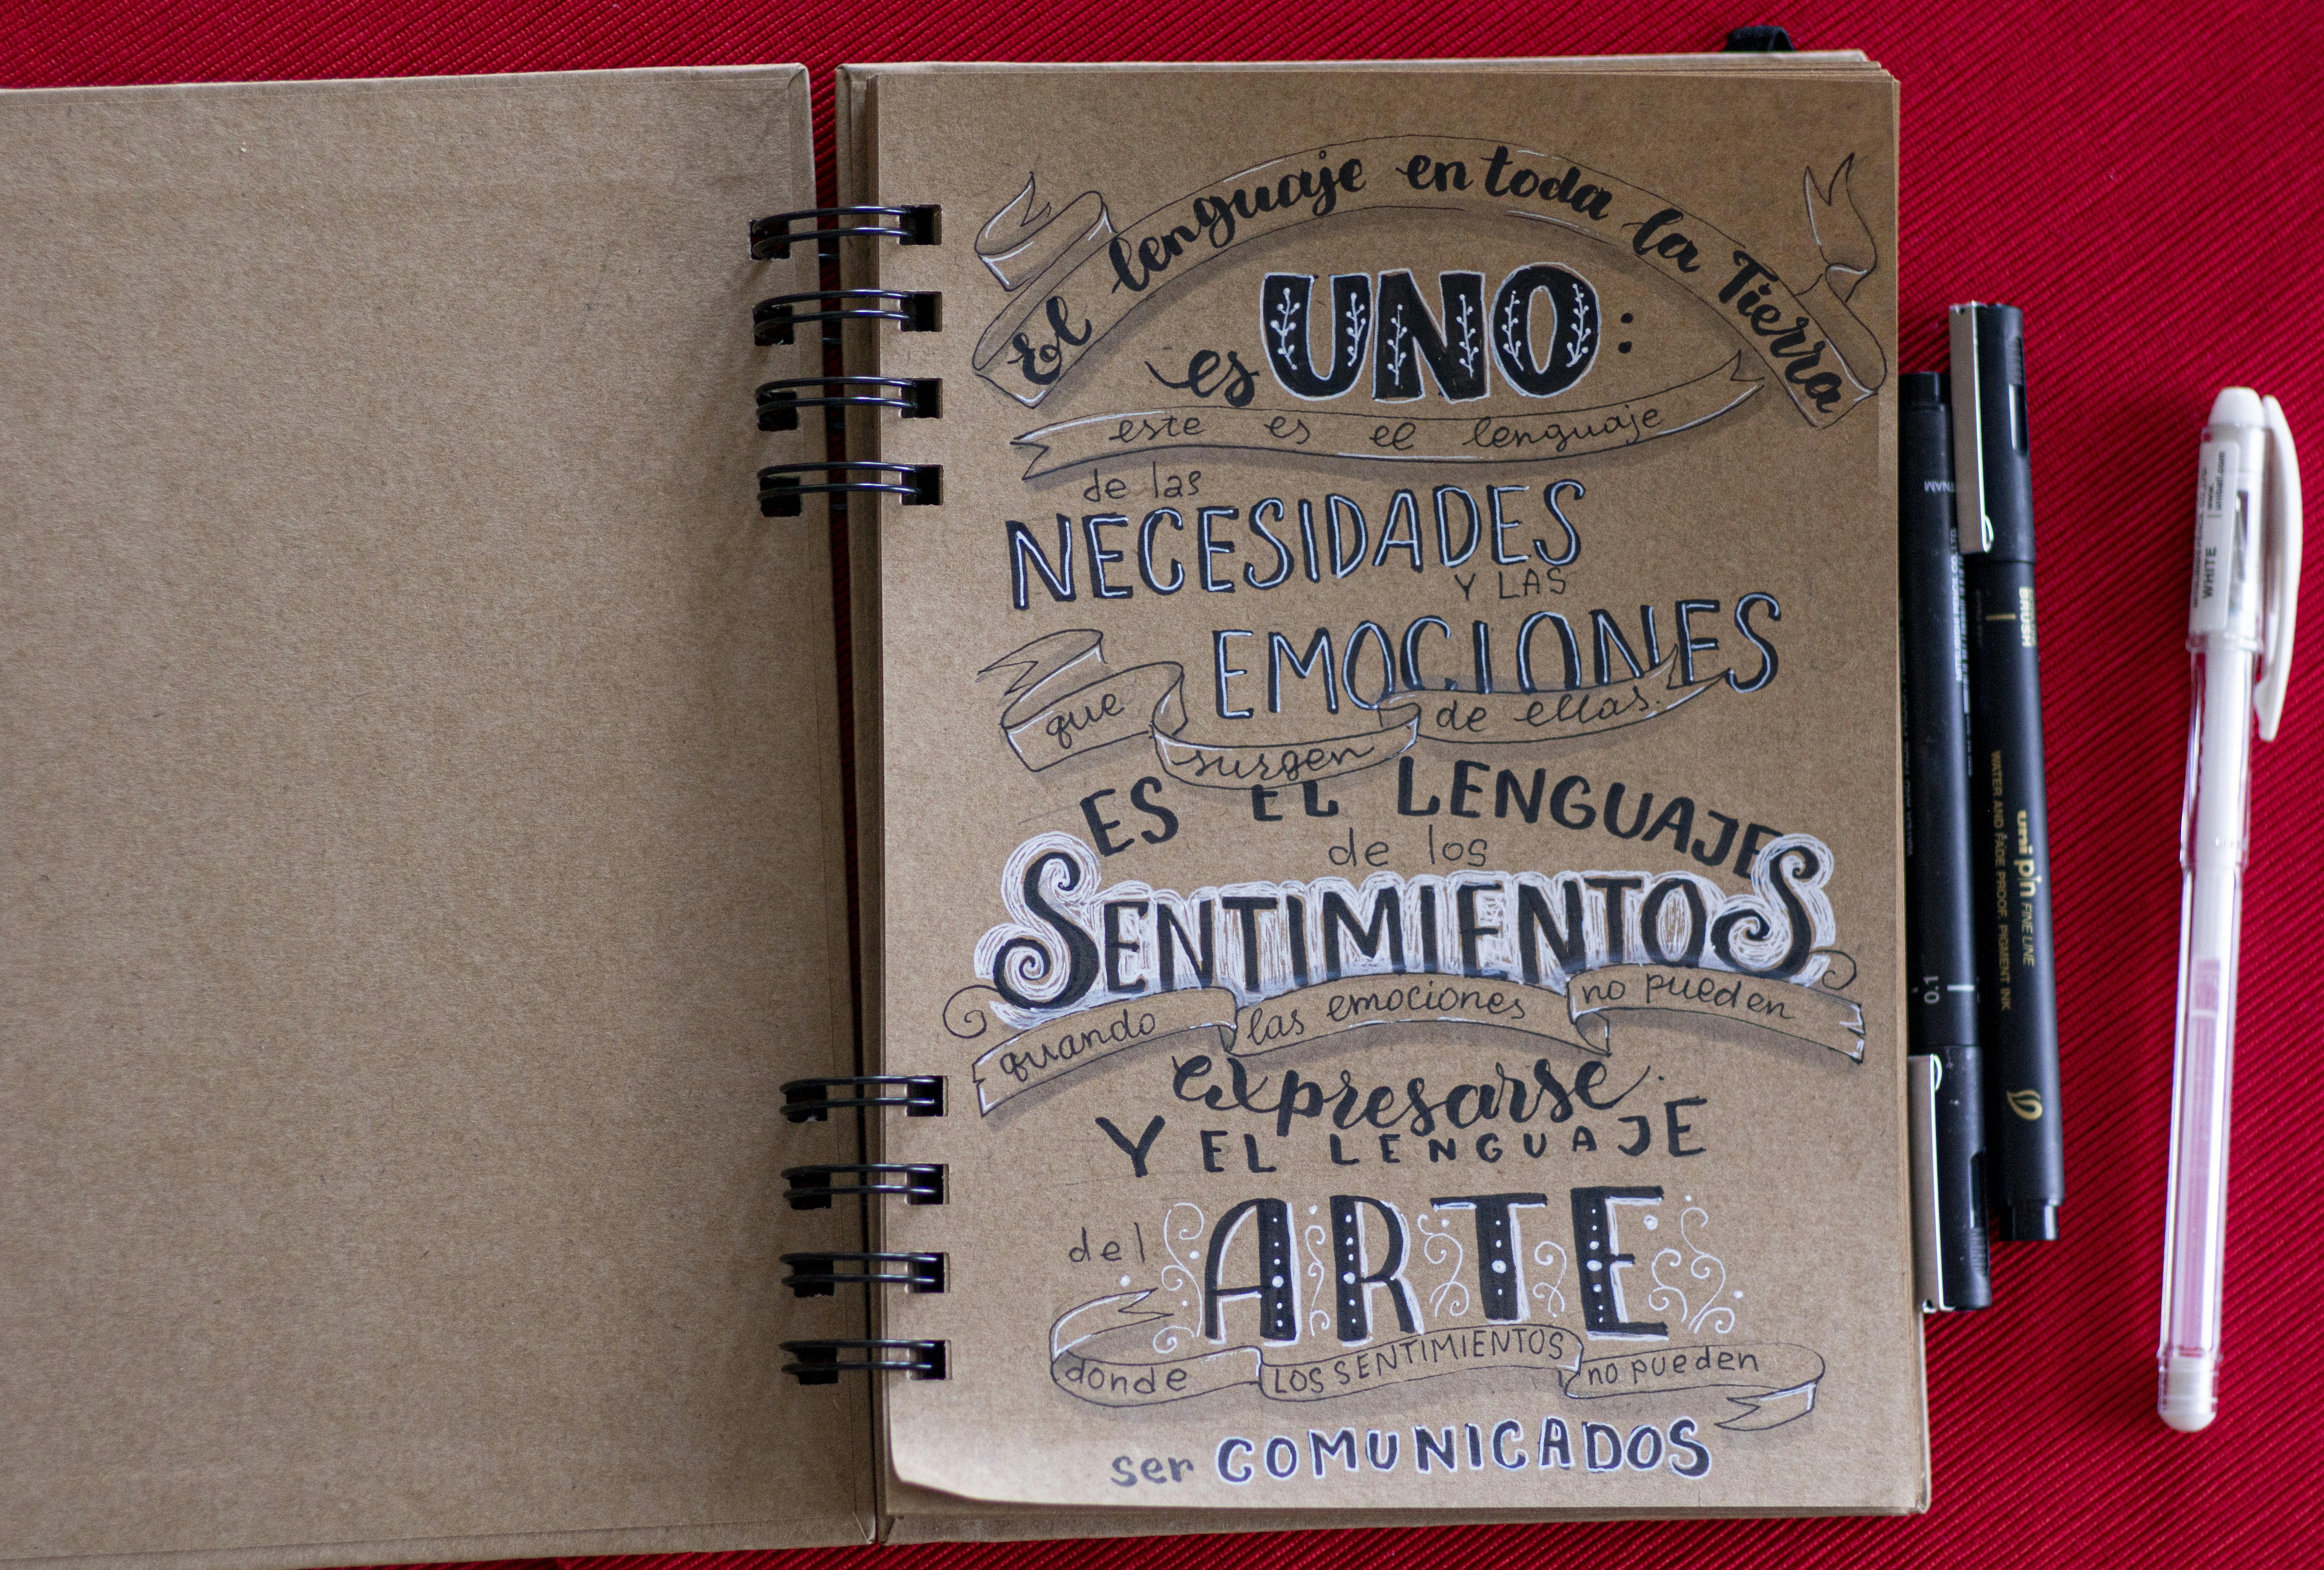 El lenguaje en toda la Tierra
es UNO:
este es el lenguaje
de las
NECESIDADES
Y LAS
EMOCIONES
que surgen de ellas.
ES EL LENGUAJE
de los
SENTIMIENTOS
quando las emociones no pueden
expresarse.
Y EL LENGUAJE
del ARTE
donde LOS SENTIMIENTOS no pueden
ser COMUNICADOS
0.1
BRUSH
uni pin FINE LINE
WATER AND FADE PROOF, PIGMENT INK
WHITE